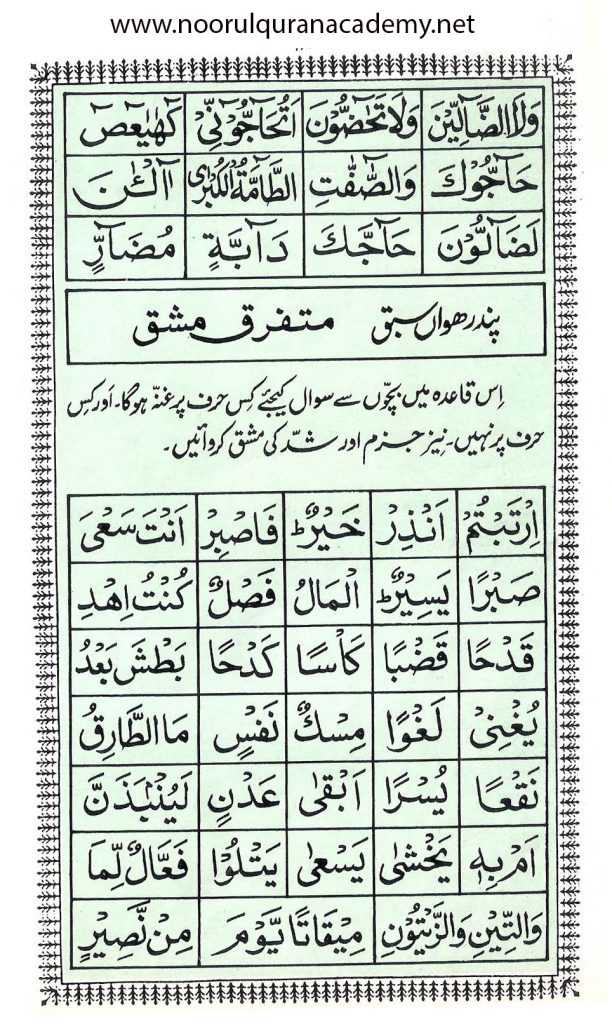 www.noorulquranacademy.net
وَلَا الضَّآلِّيْنَ وَلَا تَحٰٓضُّوْنَ اَتُحَآجُّوْٓنِّيْ كٓهٰيٰعٓصٓ
حَآجُّوْكَ وَالصّٰٓفّٰتِ الطَّآمَّةُ الْكُبْرٰى آلْـٰٔنَ
لَضَآلُّوْنَ حَآجَّكَ دَآبَّةٍ مُضَآرٍّ
پندرھواں سبق متفرق مشق
اِس قاعدہ میں بچّوں سے سوال کیجئے کِس حرف پر غنّہ ہوگا۔ اَور کِس
حرف پر نہیں۔ نیز جزم اور شدّ کی مشق کروائیں۔
اِرْتَبْتُمْ اَنْذِرْ خَيْرٌ فَاصْبِرْ اَنْتَ سَعٰى
صَبْرًا يَسِيْرٌ اَلْمَالُ فَصْلٌ كُنْتُ اِهْدِ
قَدْحًا قَضْبًا كَاْسًا كَدْحًا بَطْشَ بَعْدُ
يُغْنِيْ لَغْوًا مِسْكٌ نَفْسٍ مَا الطَّارِقُ
نَقْعًا يُسْرًا اَبْقٰى عَدْنٍ لَيُنْۢبَذَنَّ
اَمْ بِهٖ يَخْشٰى يَسْعٰى يَتْلُوْا فَعَّالٌ لِّمَا
وَالتِّيْنِ وَالزَّيْتُوْنِ مِيْقَاتًا يَّوْمَ مِنْ نَّصِيْرٍ